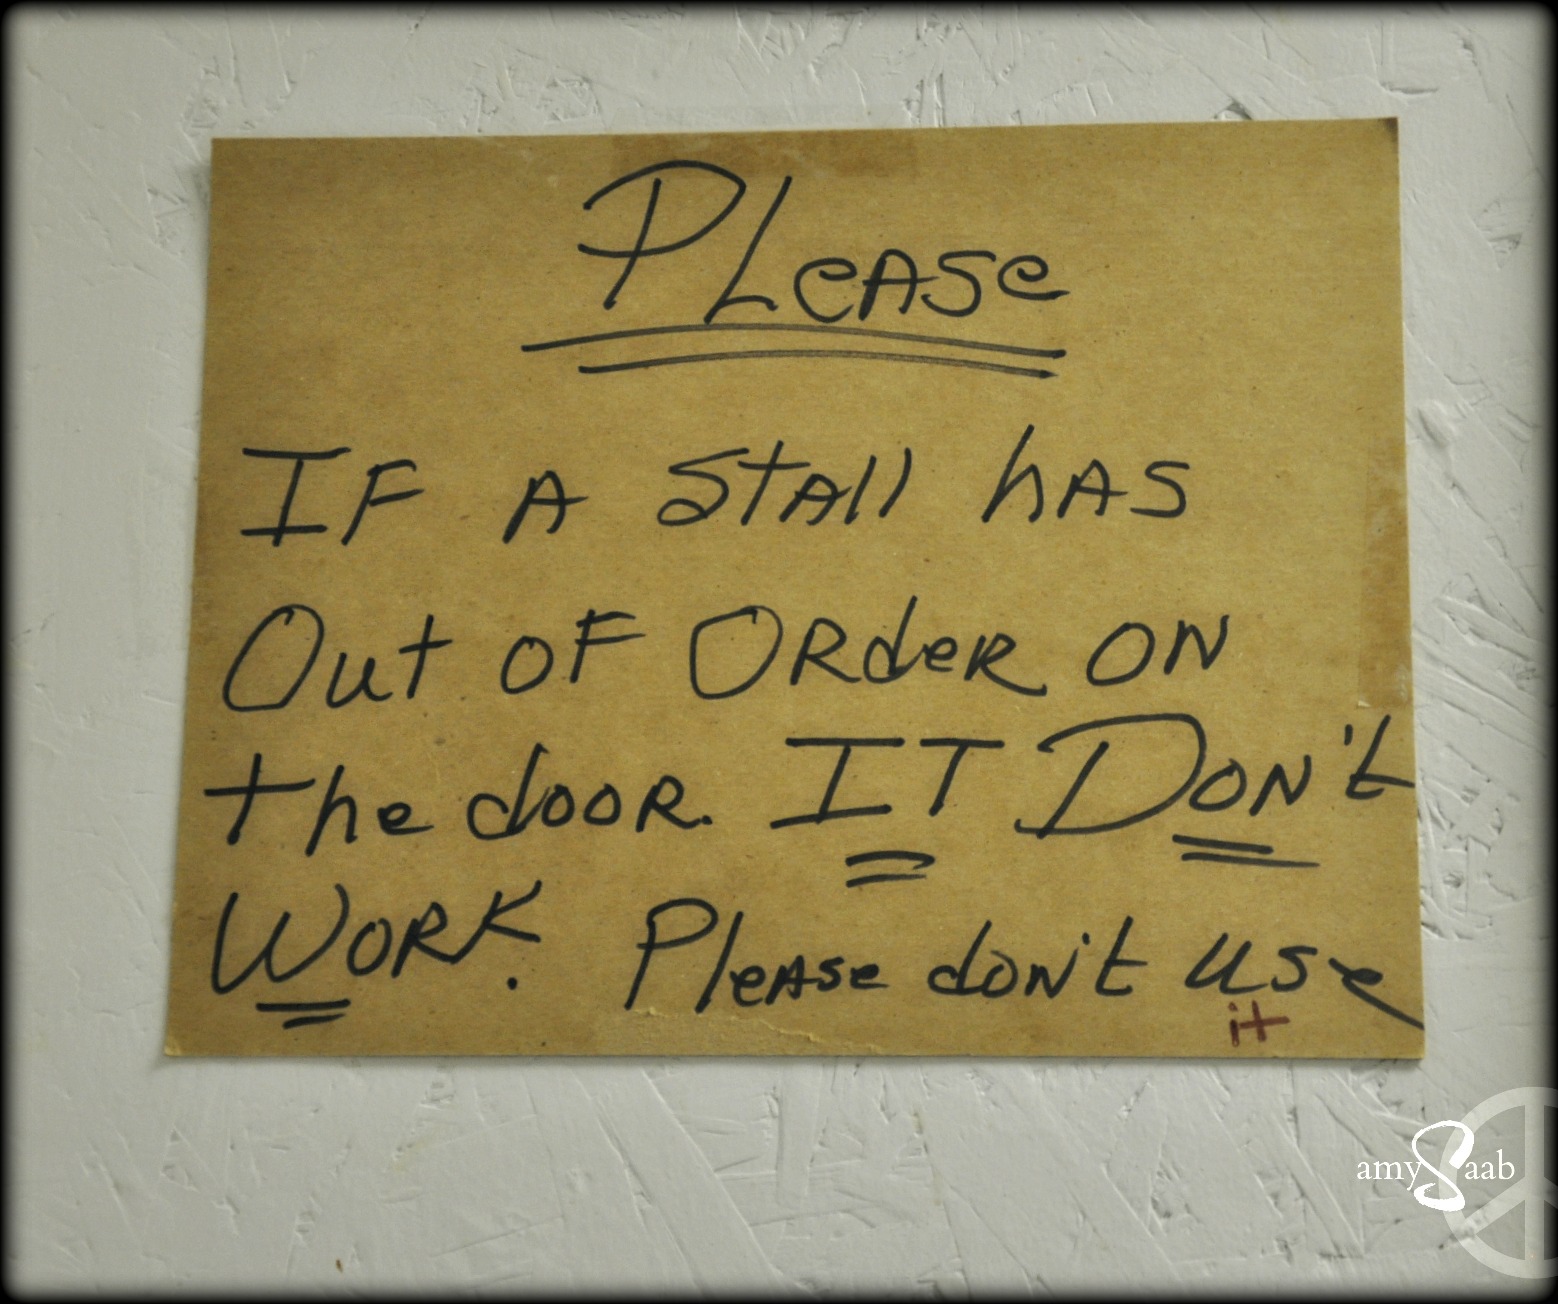 PLeASe
IF A StAll hAS
Out oF ORdeR ON
the dooR. IT DON't
WORK. PleASe doN't use
it
amy Saab